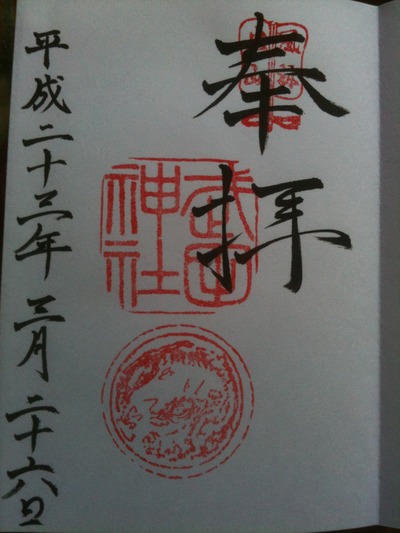 奉拝
武田
神社
平成二十三年三月二十六日